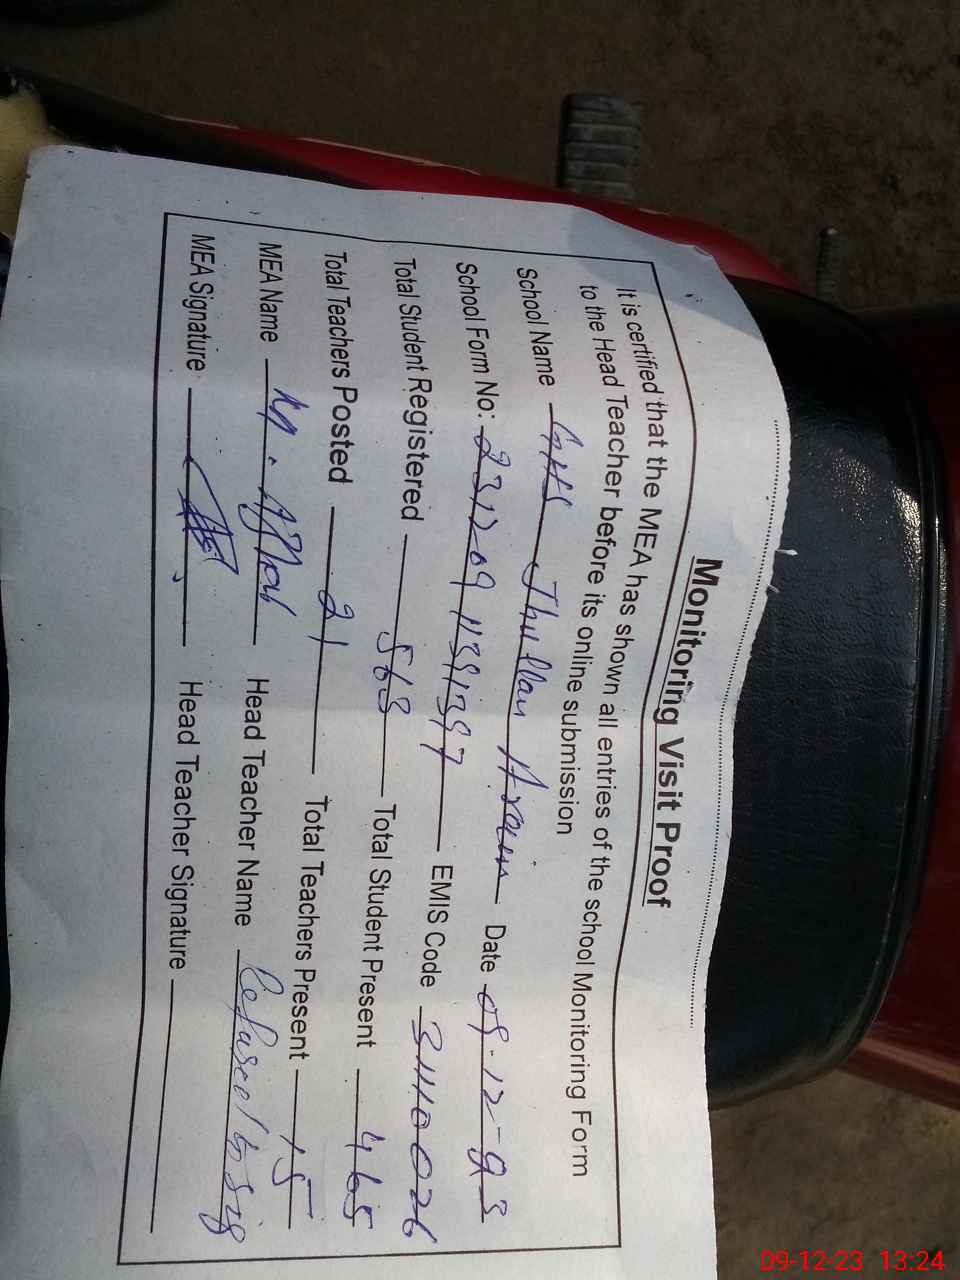 Monitoring Visit Proof
It is certified that the MEA has shown all entries of the school Monitoring Form
to the Head Teacher before its online submission
School Name GHS Jhullan Arain Date 09-12-23
School Form No: EMIS Code 31110026
Total Student Registered 563 Total Student Present 465
Total Teachers Posted 21 Total Teachers Present 15
MEA Name M. Aftab Head Teacher Name Refused to sig
MEA Signature Head Teacher Signature
09-12-23 13:24